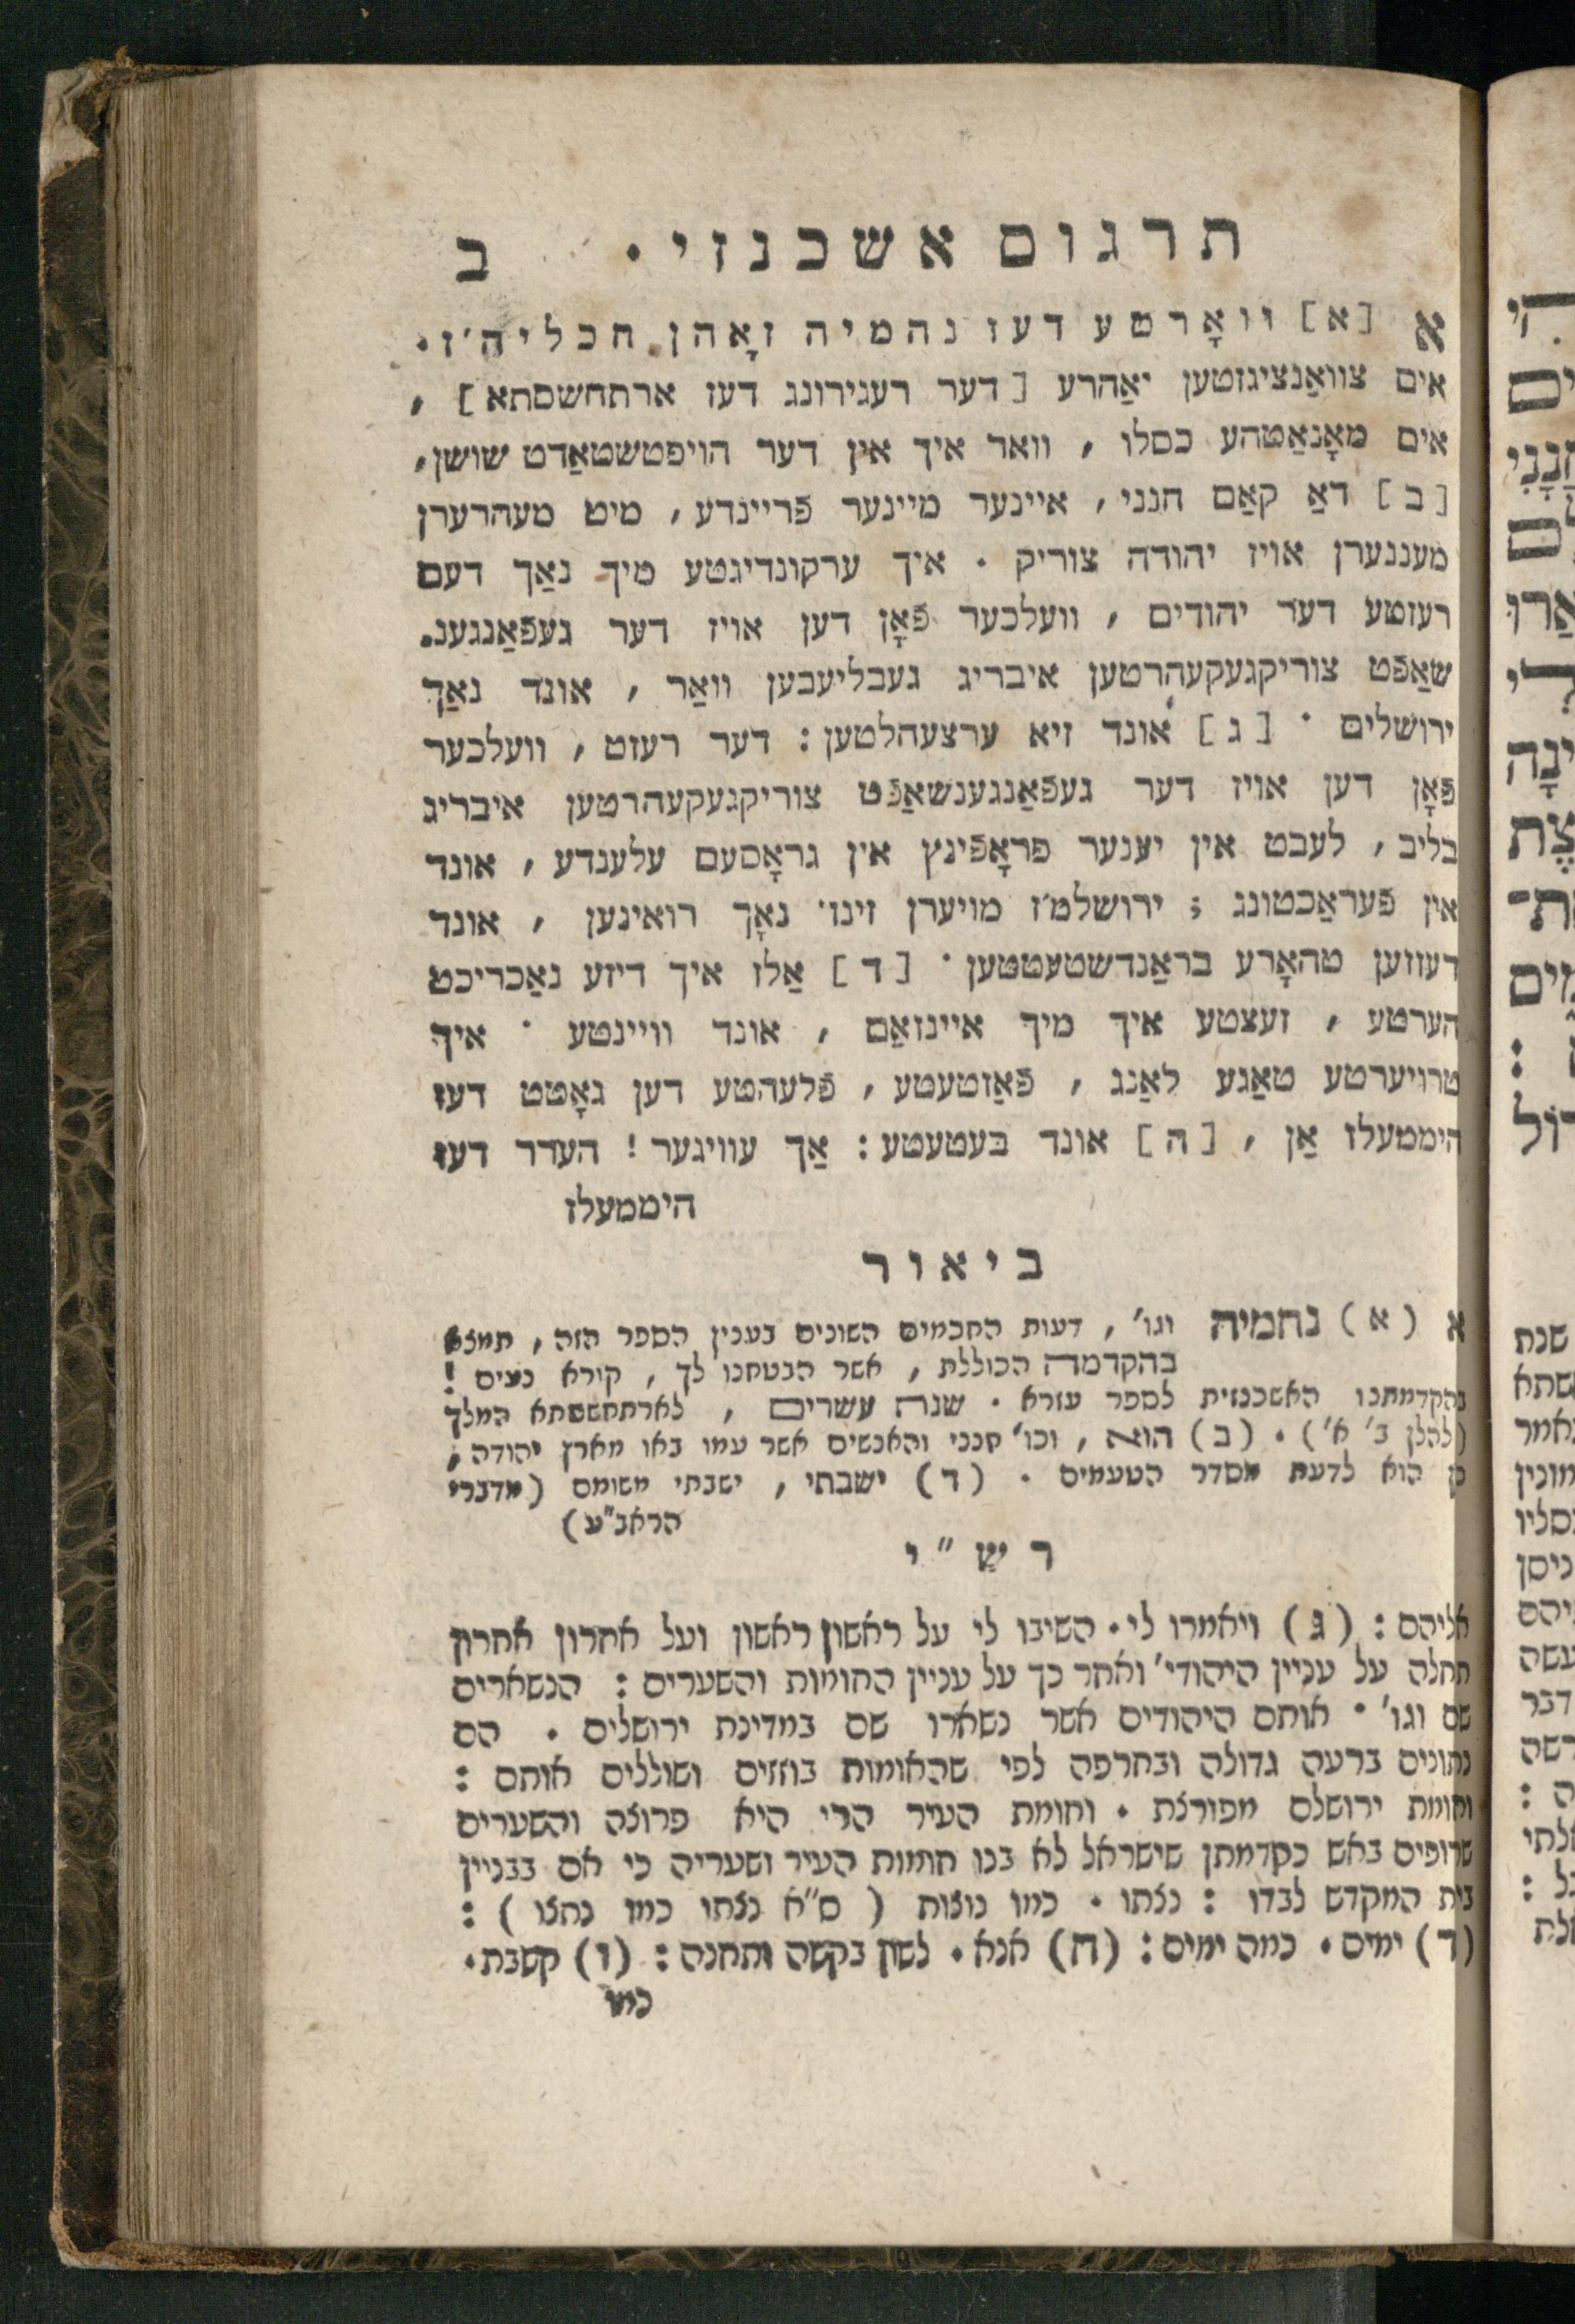 תרגום אשכנזי · ב
א [א] וואָרטע דעז נחמיה זאָהן חכליה'ז.
אים צוואַנציגזטען יאַהרע [דער רעגירונג דעז ארתחשסתא],
אים מאָנאַטהע כסלו, וואר איך אין דער הויפטשטאַדט שושן,
[ב] דאַ קאַם חנני, איינער מיינער פֿריינדע, מיט מעהרערן
מעננערן אויז יהודה צוריק · איך ערקונדיגטע מיך נאַך דעם
רעזטע דער יהודים, וועלכער פֿאָן דען אויז דער געפֿאַנגענ.
שאַפֿט צוריקגעקעהרטען איבריג געבליעבען וואַר, אונד נאַך
ירושלים · [ג] אונד זיא ערצעהלטען: דער רעזט, וועלכער
פֿאָן דען אויז דער געפֿאַנגענשאַפֿט צוריקגעקעהרטען איבריג
בליב, לעבט אין יענער פראָפֿינץ אין גראָסעם עלענדע, אונד
אין פֿעראַכטונג; ירושלם'ז מויערן זינד נאָך רואינען, אונד
דעזזען טהאָרע בראַנדשטעטטען · [ד] אַלז איך דיזע נאַכריכט
הערטע, זעצטע איך מיך איינזאַם, אונד וויינטע · איך
טרויערטע טאַגע לאַנג, פֿאַזטעטע, פֿלעהטע דען גאָטט דעז
היממעלז אַן, [ה] אונד בעטעטע: אַך עוויגער! העדר דעז
היממעלז
ביאור
א (א) נחמיה וגו', דעות החכמים השונים בענין הספר הזה, תמצא
בהקדמה הכוללת, אשר הבטחנו לך, קורא נעים!
בהקדמתנו האשכנזית לספר עזרא · שנת עשרים, לארתחששתא המלך
(להלן ב' א') · (ב) הוא, וכו' חנני והאנשים אשר עמו באו מארץ יהודה,
כן הוא לדעת מסדר הטעמים · (ד) ישבתי, ישבתי משומם (מדברי
הראב"ע)
רש"י
אליהם: (ג) ויאמרו לי. השיבו לי על ראשון ראשון ועל אחרון אחרון
תחלה על עניין היהודי' ואחר כך על עניין החומות והשערים: הנשארים
שם וגו' · אותם היהודים אשר נשארו שם במדינת ירושלים. הם
נתונים ברעה גדולה ובחרפה לפי שהאומות בוזזים ושוללים אותם:
וחומת ירושלם מפורצת. וחומת העיר הרי היא פרוצה והשערים
שרופים באש כקדמתן שישראל לא בנו חומות העיר ושעריה כי אם בבניין
בית המקדש לבדו: נצתו. כמו נוצות (ס"א נצתו כמו נתצו):
(ד) ימים. כמה ימים: (ה) אנא. לשון בקשה ותחנה: (ו) קשבת.
כמו